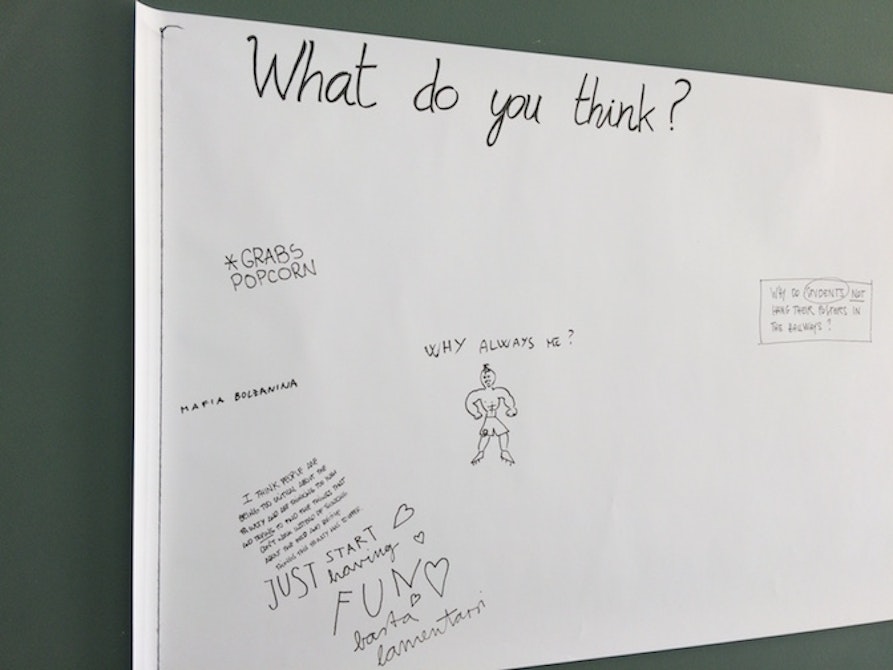 What do you think?
*GRABS
POPCORN
WHY ALWAYS ME?
WHY DO STUDENTS NOT
HANG THEIR POSTERS IN
THE HALLWAYS?
MAFIA BOLZANINA
I THINK PEOPLE ARE
BEING TOO CRITICAL ABOUT THE
AND TRYING TO FIND THE THINGS THAT
DON'T WORK INSTEAD OF THINKING
JUST START
having
FUN
basta
lamentarsi